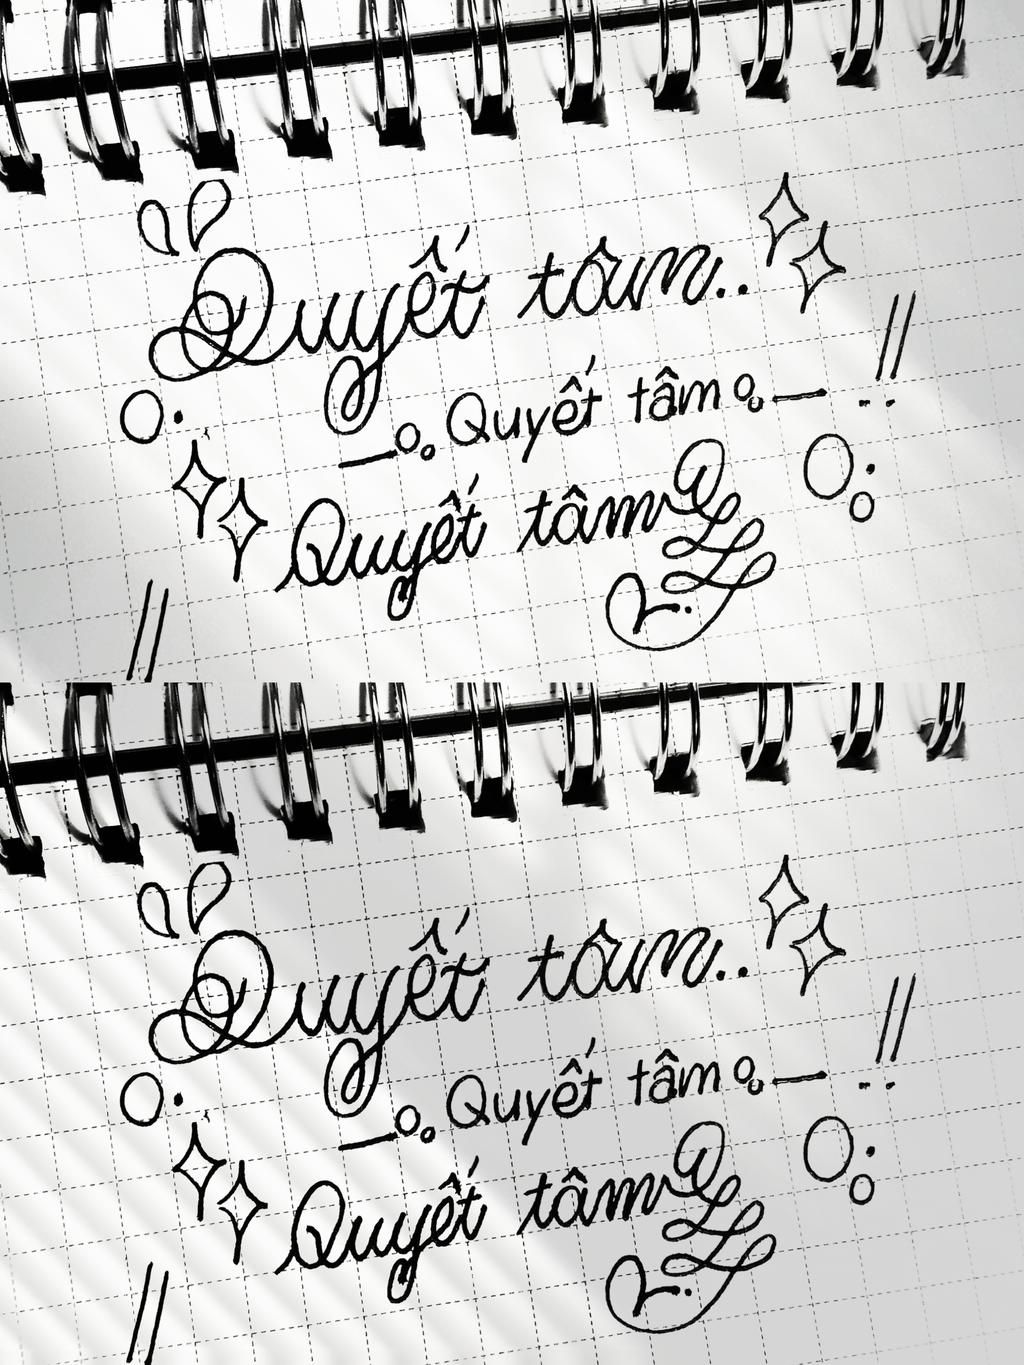 Quyết tâm..
Quyết tâm
Quyết tâm
Quyết tâm..
Quyết tâm
Quyết tâm